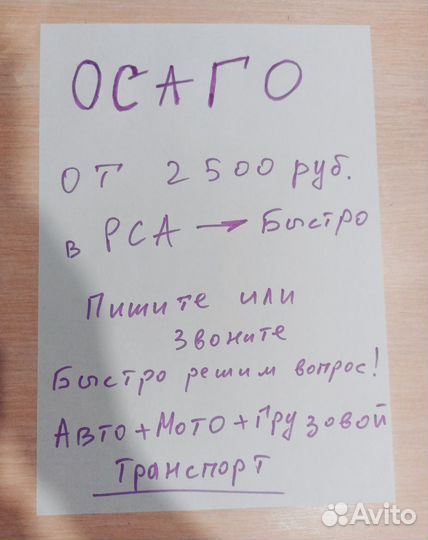 ОСАГО
от 2500 руб.
в РСА → Быстро
Пишите или
звоните
Быстро решим вопрос!
Авто+Мото+Грузовой
транспорт
Avito